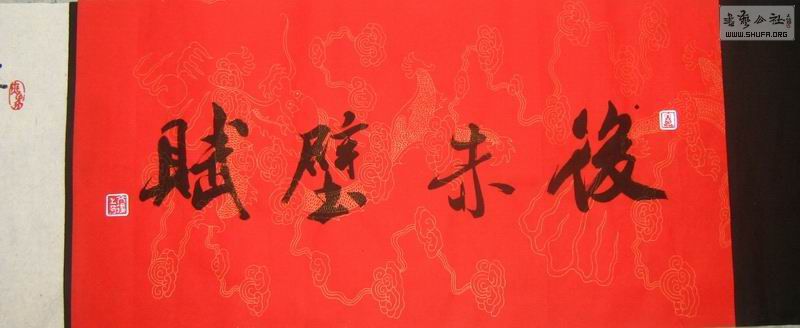 後赤壁賦
書藝公社
WWW.SHUFA.ORG